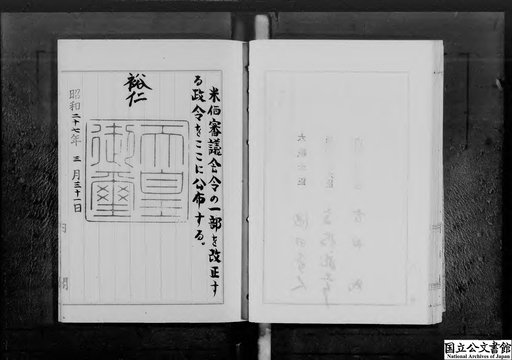 米価審議会令の一部を改正す
る政令をここに公布する。
裕仁
天皇
御璽
昭和二十七年三月三十一日
国立公文書館
National Archives of Japan